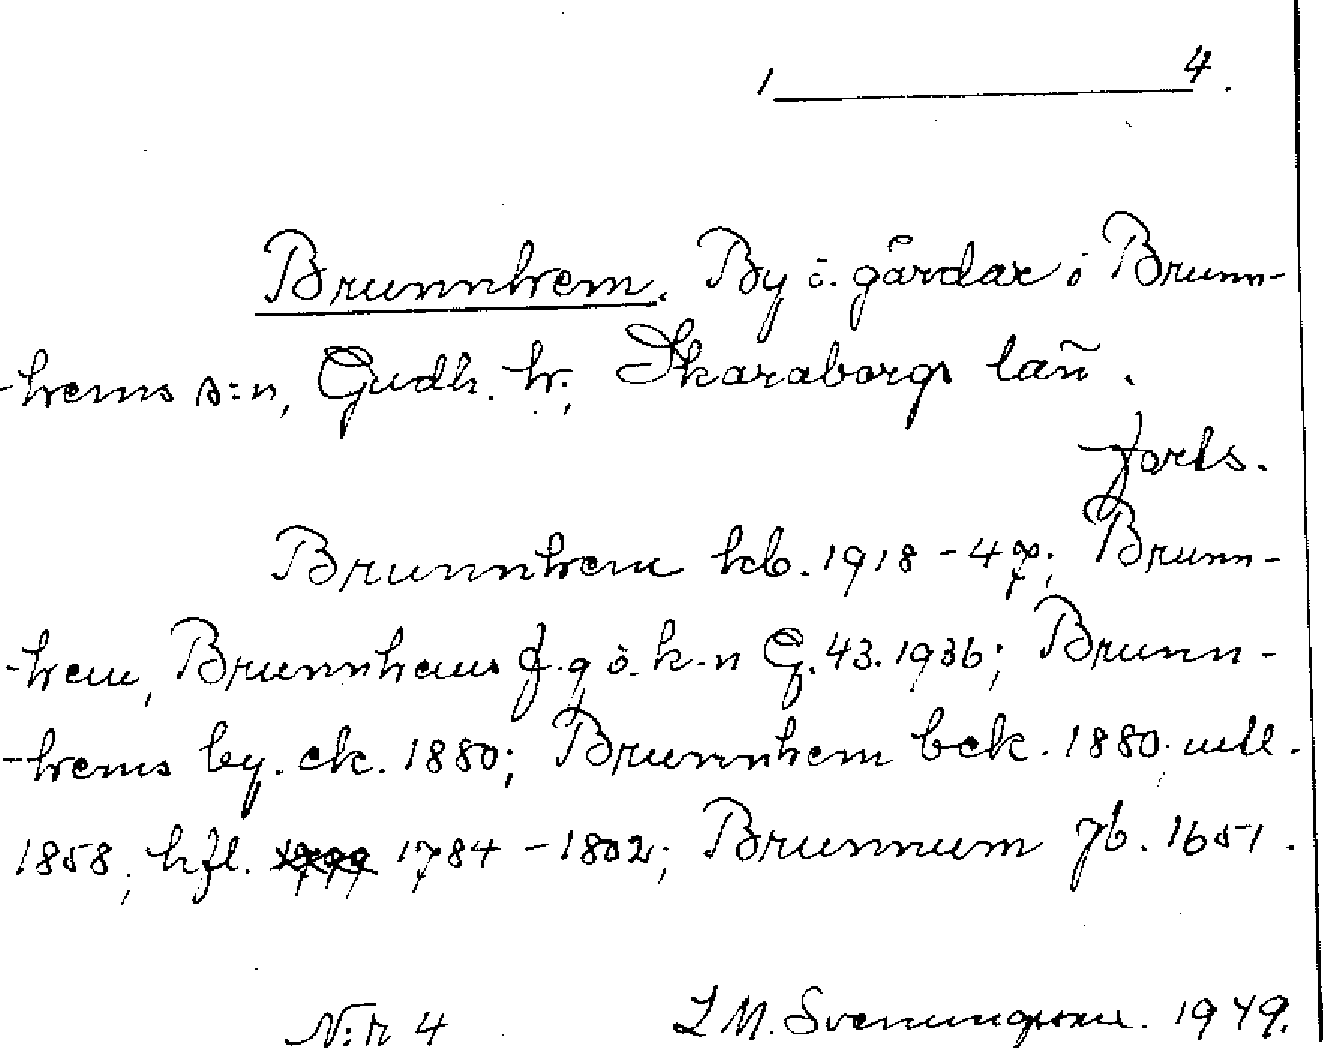 1 4.
Brunnhem. By o. gårdar i Brunn-
-hems s:n, Gudh. hr., Skaraborgs län.
forts.
Brunnhem kb. 1918-47; Brunn-
-hem, Brunnhems J. g o. k-n G. 43. 1936; Brunn-
-hems by. ek. 1880; Brunnhem bck. 1880. utl.
1858; hfl. 1784-1802; Brunnum jb. 1651.
N:r 4 L M. Svenungsson. 1949.